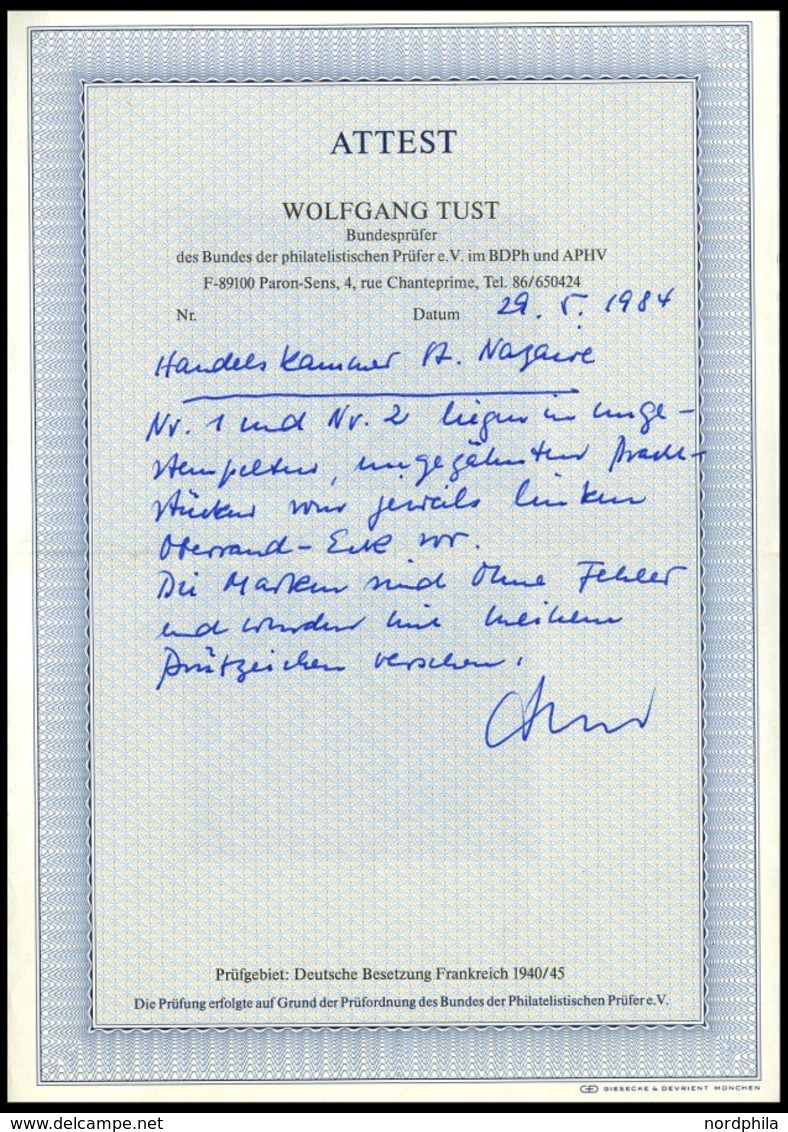 ATTEST
WOLFGANG TUST
Bundesprüfer
des Bundes der philatelistischen Prüfer e.V. im BDPh und APHV
F-89100 Paron-Sens, 4, rue Chanteprime, Tel. 86/650424
Nr. Datum 29. 5. 1984
Handelskammer St. Nazaire
Nr. 1 und Nr. 2 liegen in unge-
stempelten, ungezähnten Pracht-
stücken von jeweils linken
Oberrand-Eck vor.
Die Marken sind ohne Fehler
und wurden mit meinem
Prüfzeichen versehen.
Prüfgebiet: Deutsche Besetzung Frankreich 1940/45
Die Prüfung erfolgte auf Grund der Prüfordnung des Bundes der Philatelistischen Prüfer e.V.
GIESECKE & DEVRIENT MÜNCHEN
www.delcampe.net nordphila